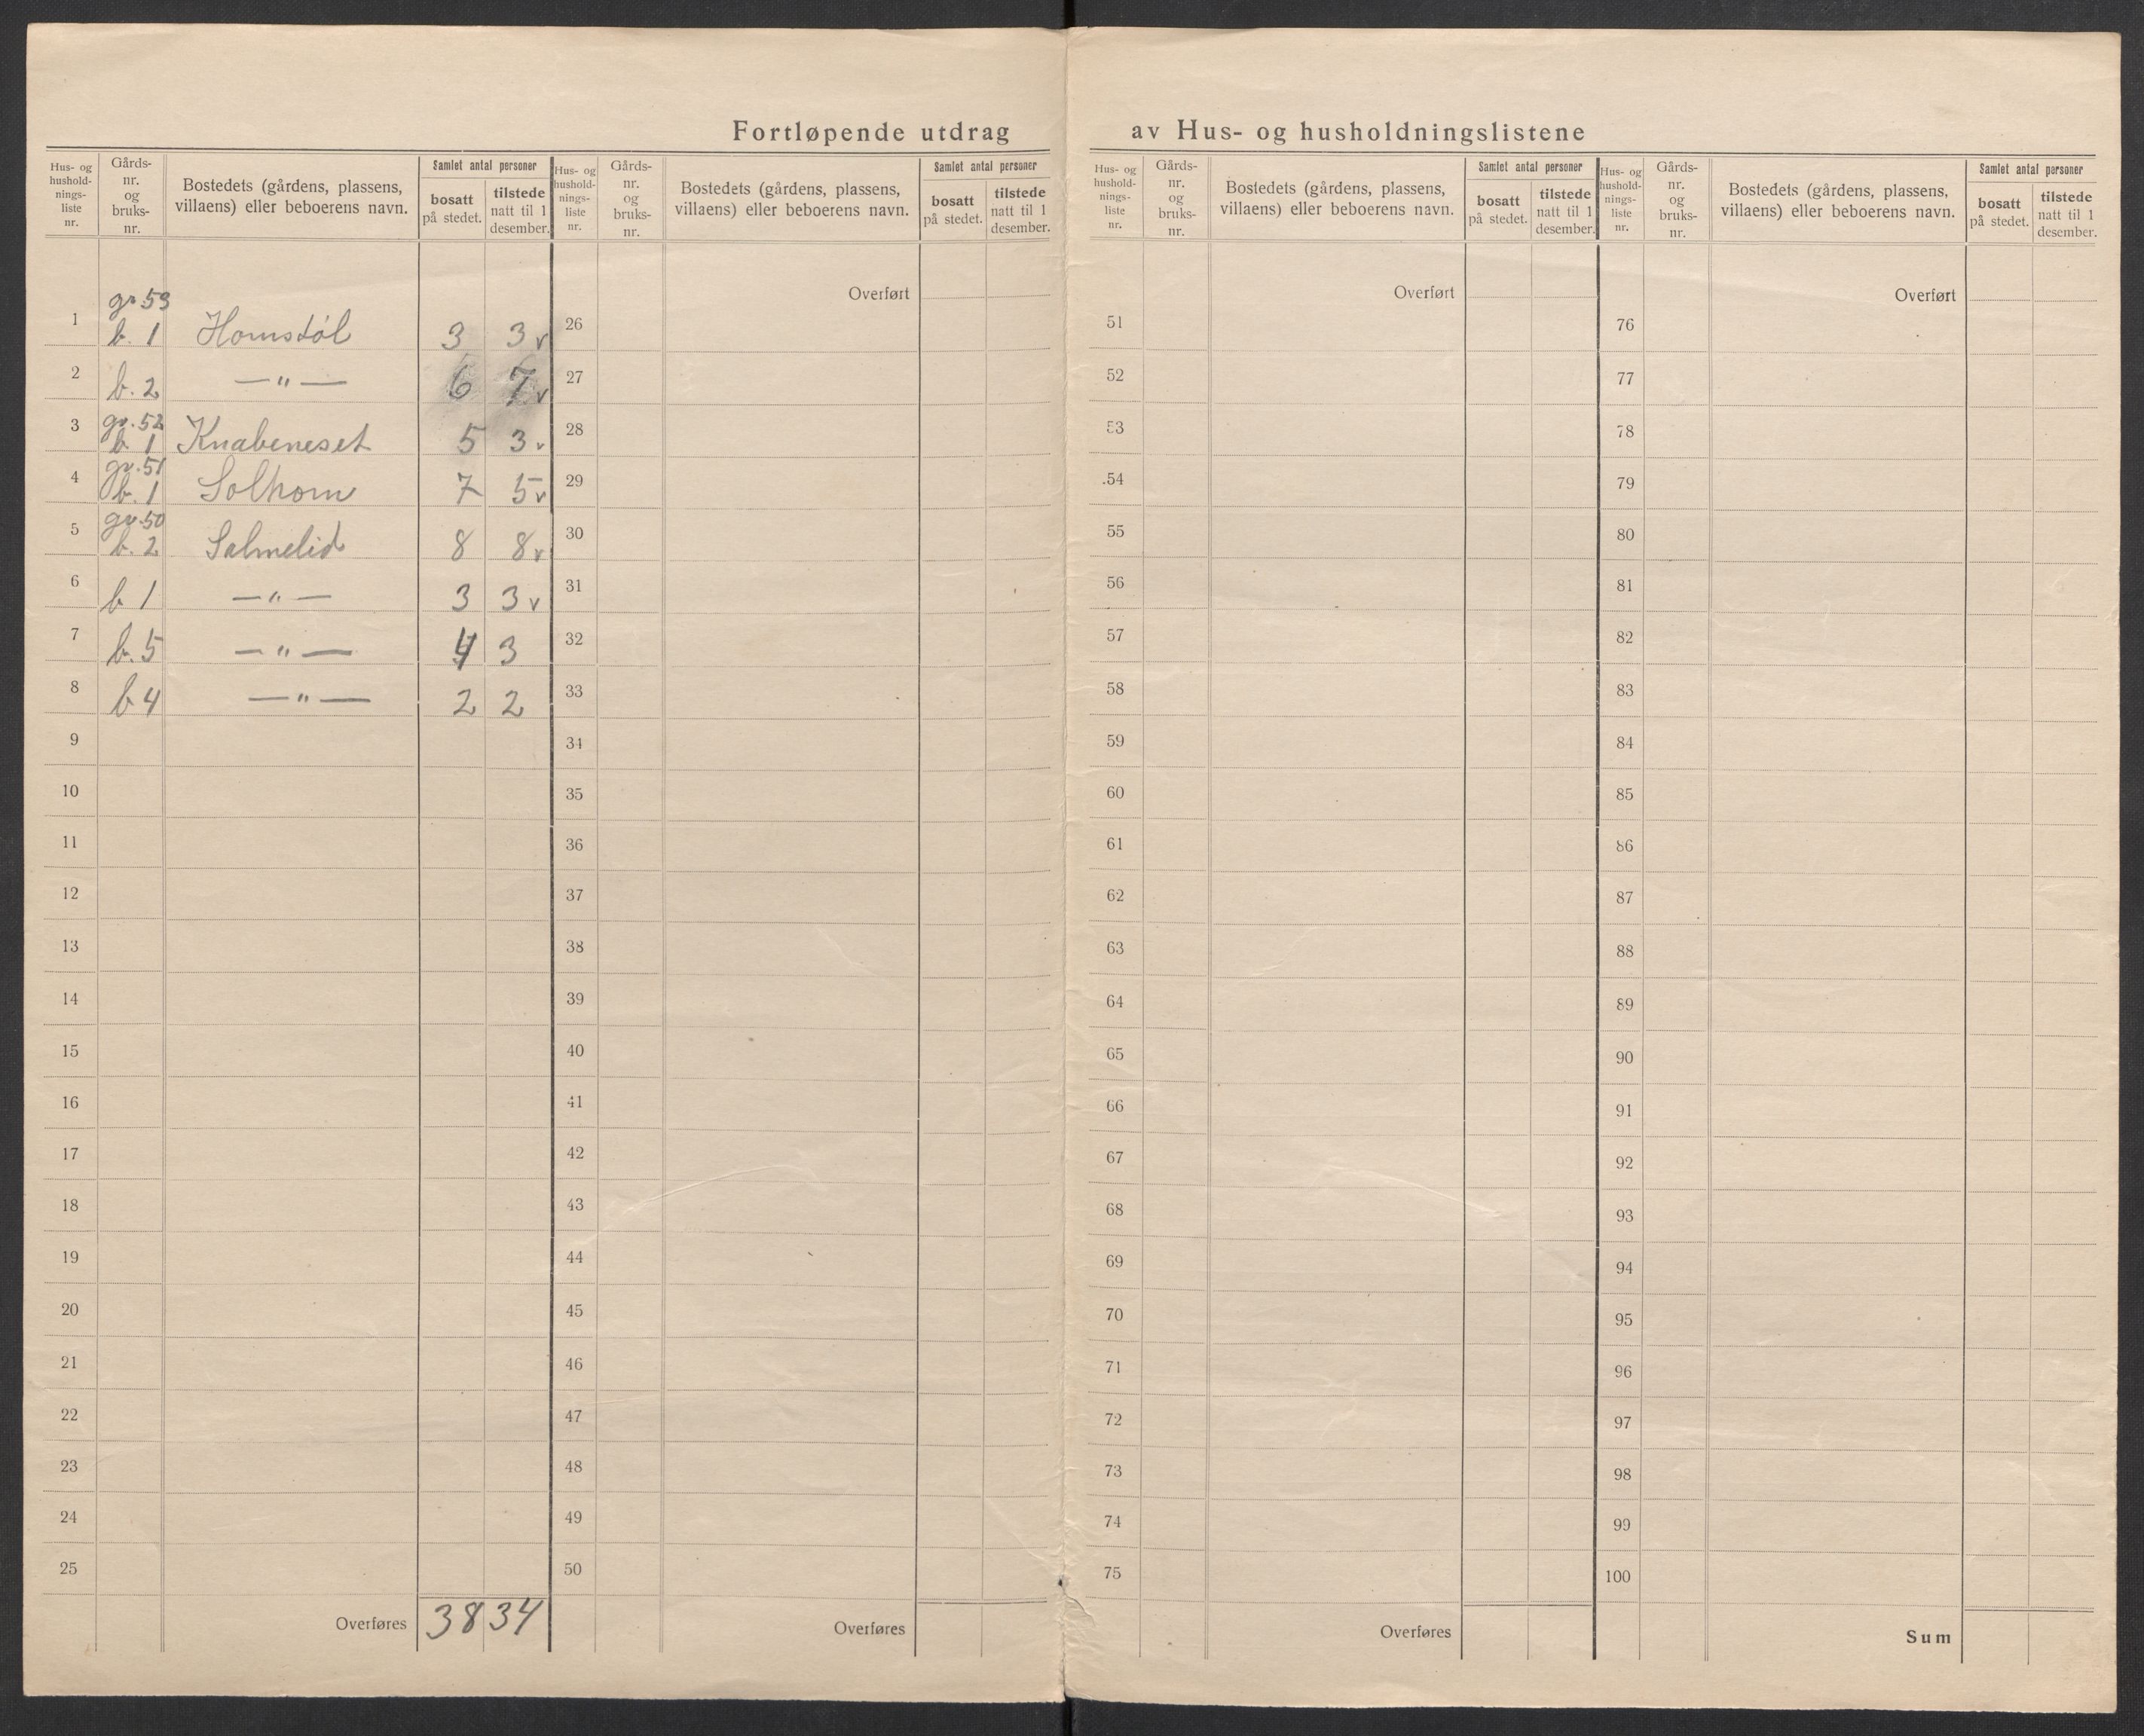 Fortløpende utdrag av Hus- og husholdningslistene
Hus- og hushold- nings- liste nr.
Gårds- nr. og bruks- nr.
Bostedets (gårdens, plassens, villaens) eller beboerens navn.
Samlet antal personer
bosatt på stedet.
tilstede natt til 1 desember.
gr. 53
1 b. 1 Homstøl 3 3 v
2 b. 2 — " — 6 7 v
gr. 52
3 b. 1 Knabeneset 5 3 v
gr. 51
4 b. 1 Solhom 7 5 v
gr. 50
5 b. 2 Salmelid 8 8 v
6 b 1 — " — 3 3 v
7 b. 5 — " — 4 3
8 b 4 — " — 2 2
9
10
11
12
13
14
15
16
17
18
19
20
21
22
23
24
25
Overføres 38 34
Hus- og hushold- nings- liste nr.
Gårds- nr. og bruks- nr.
Bostedets (gårdens, plassens, villaens) eller beboerens navn.
Samlet antal personer
bosatt på stedet.
tilstede natt til 1 desember.
Overført
26
27
28
29
30
31
32
33
34
35
36
37
38
39
40
41
42
43
44
45
46
47
48
49
50
Overføres
Hus- og hushold- nings- liste nr.
Gårds- nr. og bruks- nr.
Bostedets (gårdens, plassens, villaens) eller beboerens navn.
Samlet antal personer
bosatt på stedet.
tilstede natt til 1 desember.
Overført
51
52
53
54
55
56
57
58
59
60
61
62
63
64
65
66
67
68
69
70
71
72
73
74
75
Overføres
Hus- og hushold- nings- liste nr.
Gårds- nr. og bruks- nr.
Bostedets (gårdens, plassens, villaens) eller beboerens navn.
Samlet antal personer
bosatt på stedet.
tilstede natt til 1 desember.
Overført
76
77
78
79
80
81
82
83
84
85
86
87
88
89
90
91
92
93
94
95
96
97
98
99
100
Sum